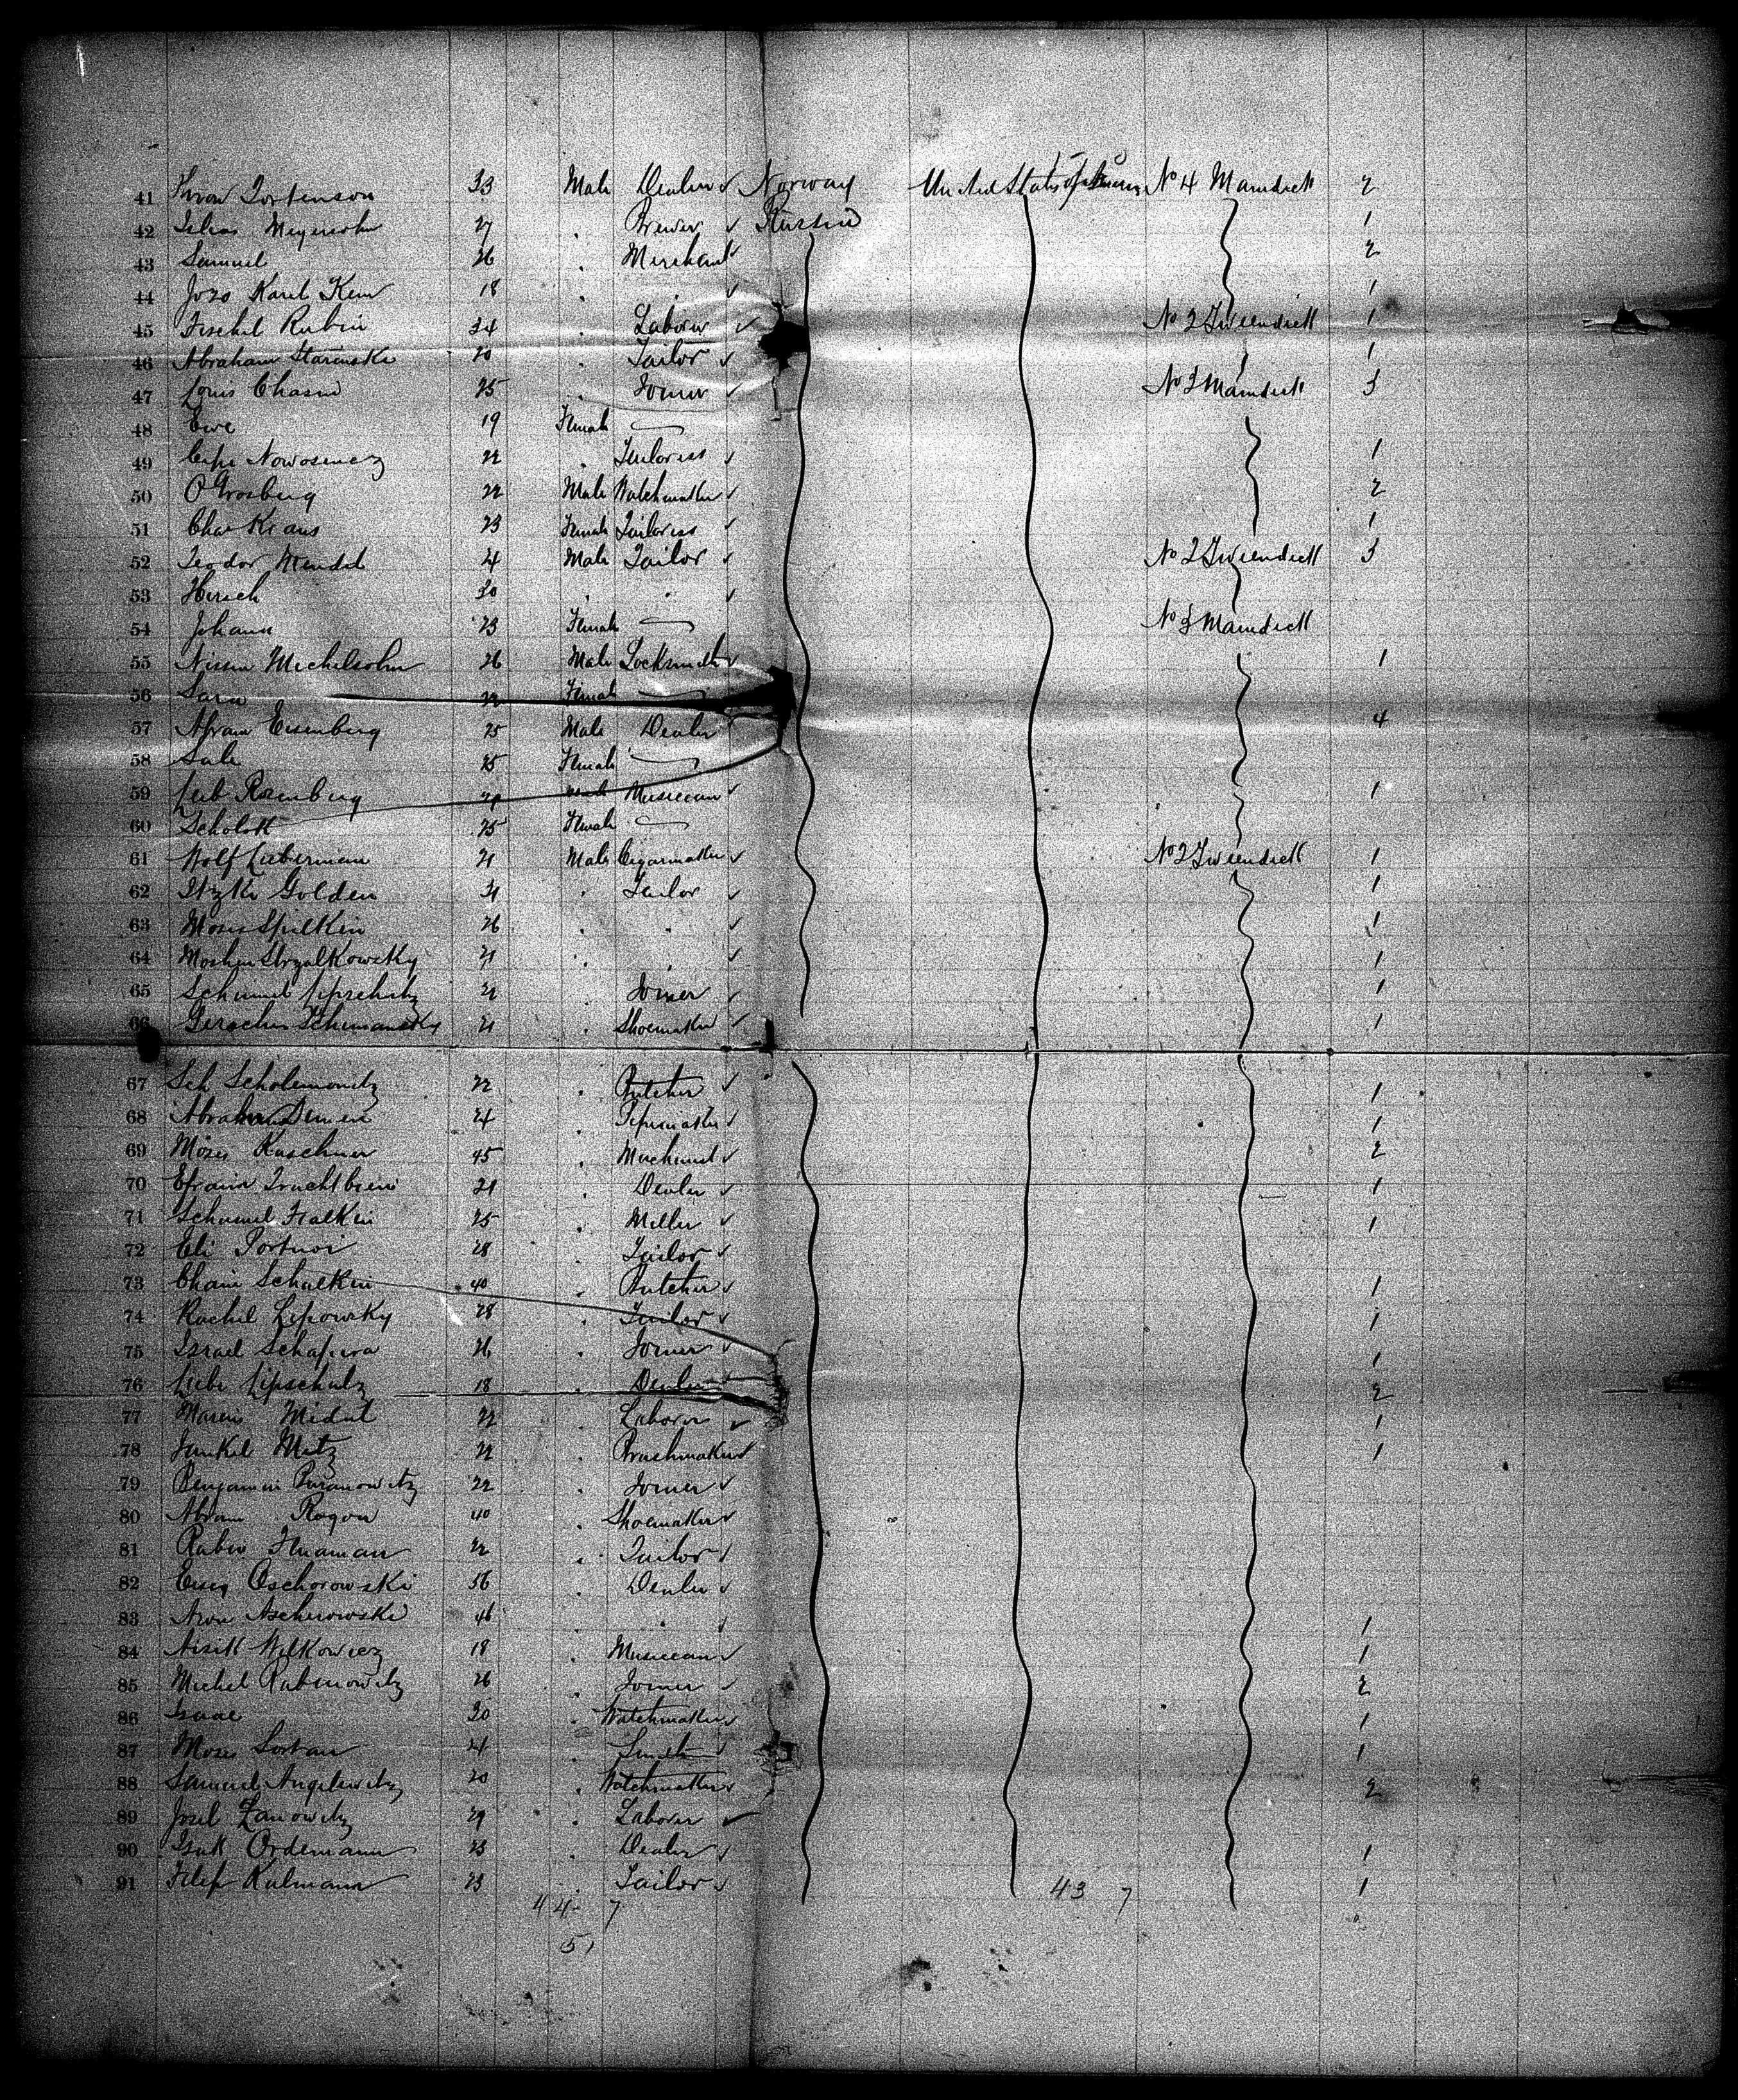 41 Tortenson 33 Male Dealer ✓ Norway United States of America No 4 Maindeck 2
42 Meyersohn 27 " Brewer ✓ Russia 1
43 Samuel 26 " Merchant ✓ 2
44 Karel 18 " " ✓ 1
45 Fischel Rubin 34 " Laborer ✓ No 2 Tweendeck 1
46 Abraham Starinski 20 " Tailor ✓ 1
47 Louis Chasin 25 " Joiner ✓ No 3 Maindeck 3
48 Ewe 19 Female —
49 22 " Tailoress ✓ 1
50 O Grosberg 22 Male Watchmaker ✓ 2
51 Kraus 23 Female Tailoress ✓ 1
52 Teodor Mendel 24 Male Tailor ✓ No 2 Tweendeck 3
53 Hirsch 30 " " ✓
54 Johann 23 Female — No 3 Maindeck
55 Nissen Michelsohn 26 Male Locksmith ✓ 1
56 Sara 22 Female —
57 Abram Eisenberg 25 Male Dealer ✓ 4
58 Sale 25 Female —
59 Leib Rosenberg Male Musiccan ✓ 1
60 25 Female —
61 Wolf Lieberman 21 Male Cigarmaker ✓ No 2 Tweendeck 1
62 Itzko Golden 31 " Tailor ✓ 1
63 Moses Spilkin 26 " " ✓ 1
64 Strzalkowsky 21 " " ✓ 1
65 Schumel Lipschutz 21 " Joiner ✓ 1
66 Schimansky 21 " Shoemaker ✓ 1
67 Sch Scholemowitz 22 " Butcher ✓ 1
68 Abraham 24 " ✓ 1
69 Moses Kaschner 45 " Merchant ✓ 2
70 Efraim 21 " Dealer ✓ 1
71 Schumel Falkin 25 " Miller ✓ 1
72 Eli Portnoi 28 " Tailor ✓
73 Chaim Schulkin 40 " Butcher ✓ 1
74 Rachel Lipowsky 28 " Tailor ✓ 1
75 Israel Schapira 26 " Joiner ✓ 1
76 Liebe Lipschulz 18 " Dealer ✓ 2
77 22 " Laborer ✓ 1
78 Jankel Metz 22 " Brushmaker ✓ 1
79 Benjamin Buranowitz 22 " Joiner ✓
80 Abram Rogow 40 " Shoemaker ✓
81 Rubin 22 " Tailor ✓
82 Oschorowski 56 " Dealer ✓
83 Aron Ascherowski 46 " " ✓ 1
84 Aisik Wilkowicz 18 " Musiccan ✓ 1
85 Michel Rabinowitz 26 " Joiner ✓ 2
86 Isaac 20 " Watchmaker ✓ 1
87 Moses 24 " Smith ✓ 1
88 Samuel Angelewitz 20 " Watchmaker ✓ 2
89 Josel Zanowitz 29 " Laborer ✓
90 Isak Ordemann 23 " Dealer ✓ 1
91 Filip Kalmann 23 " Tailor ✓ 1
44 7 43 7
51